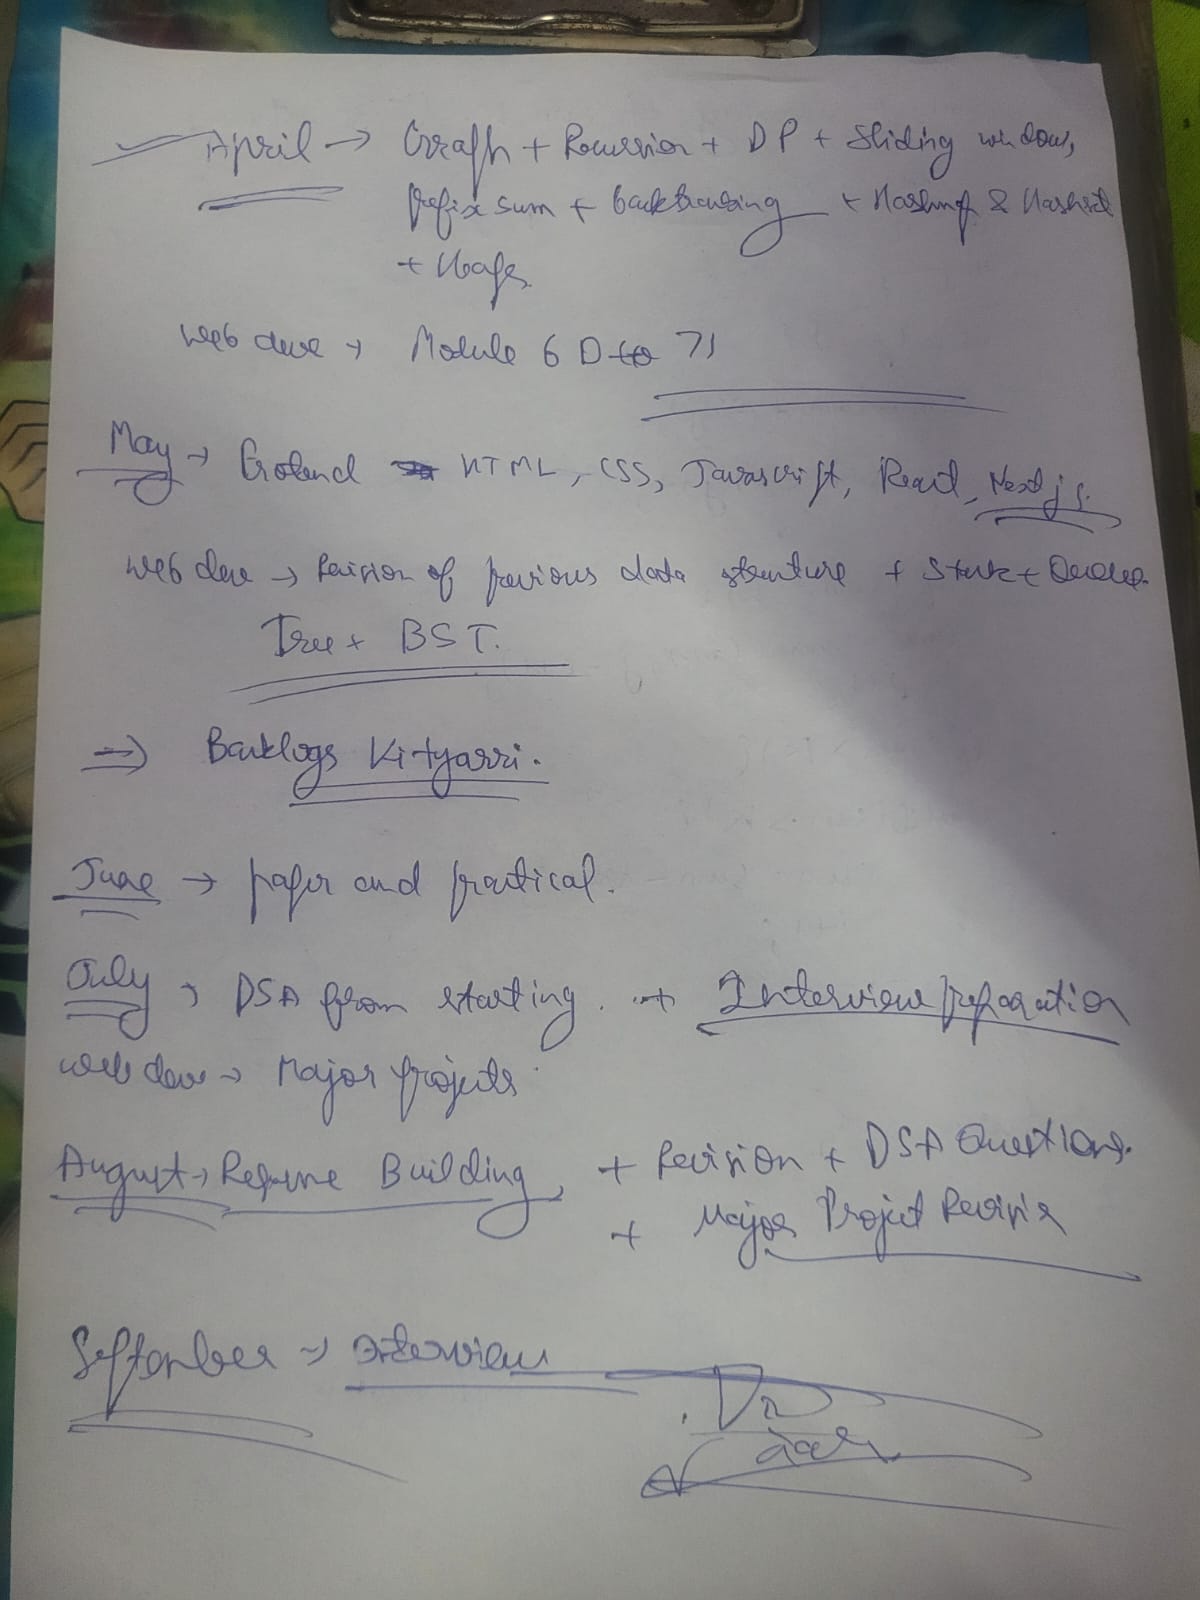 April → Graph + Recursion + DP + Sliding window,
prefix sum + backtracking + Hashmap & Hashset
+ Heaps
Web deve → Module 60 to 71
May → HTML, CSS, Javascript, React, Next js.
Web deve → Revision of previous data structure + Stack + Queue
Tree + BST.
⇒ Backlogs Ki tyarri.
June → paper and practical.
July → DSA from starting. + Interview preparation
Web deve → Major projects
August → Resume Building, + Revision + DSA Questions.
+ Major Project Revision
September → Interview